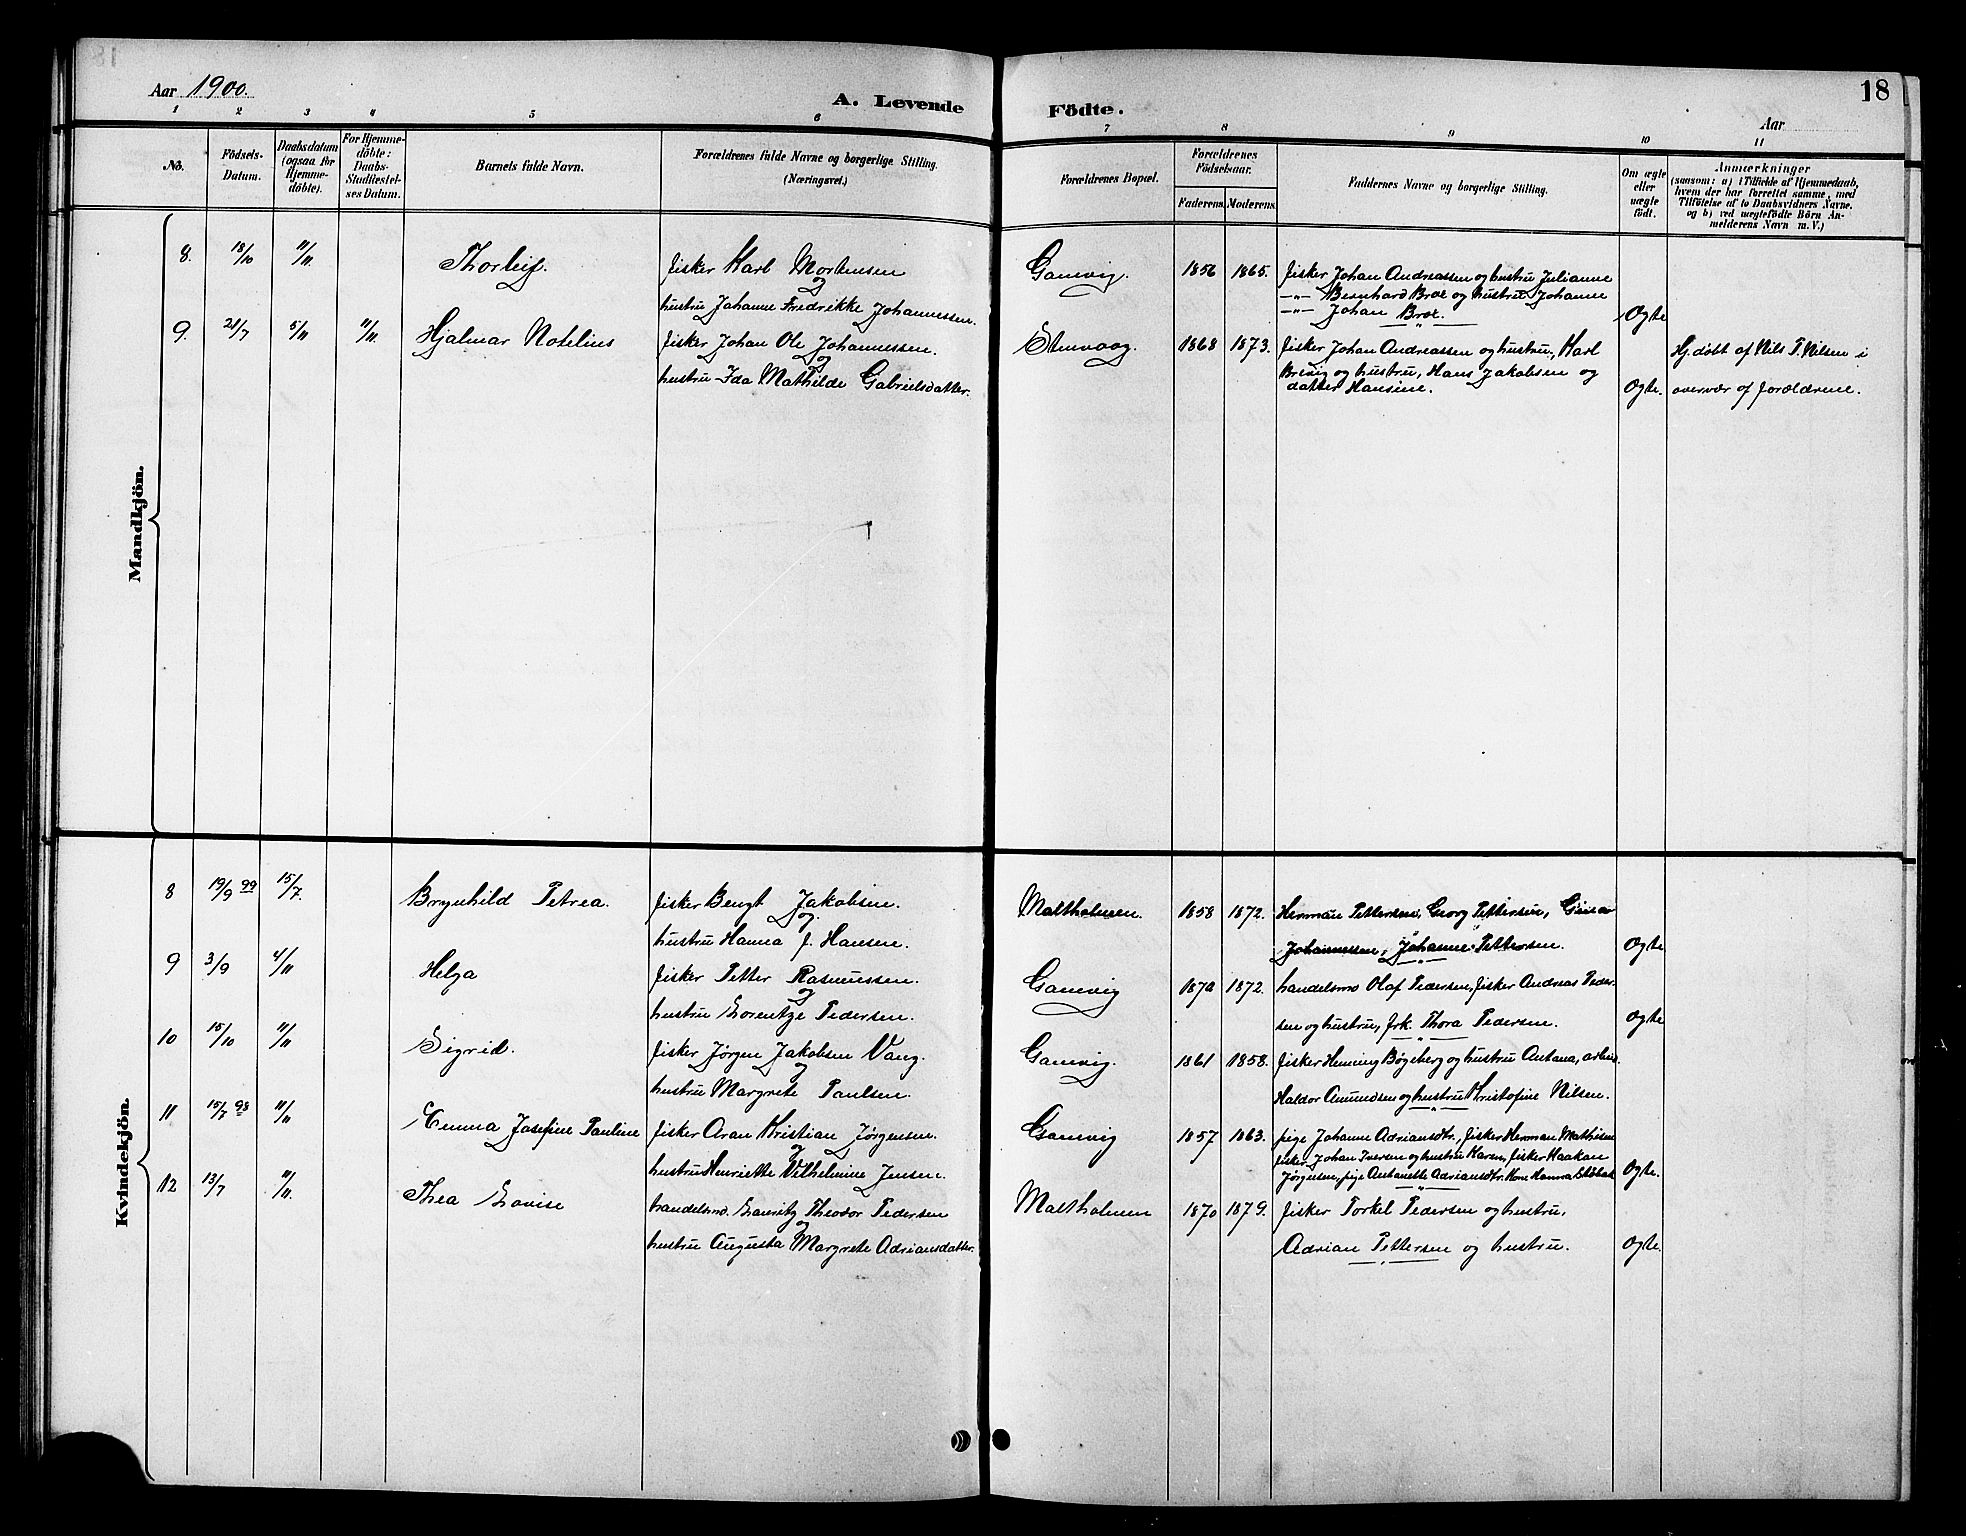 18
Aar 1900.
A. Levende Födte.
Aar
1 2 3 4 5 6 7 8 9 10 11
No.
Födsels-Datum.
Daabsdatum (ogsaa for Hjemme-döbte).
For Hjemme-döbte: Daabs-Stadfæstel-ses Datum.
Barnets fulde Navn.
Forældrenes fulde Navne og borgerlige Stilling.
(Næringsvei.)
Forældrenes Bopæl.
Forældrenes Födselsaar.
Faderens. Moderens.
Faddernes Navne og borgerlige Stilling.
Om ægte eller uægte födt.
Anmærkninger
(saasom: a) i Tilfælde af Hjemmedaab,
hvem der har forrettet samme, med
Tilföielse af to Daabsvidners Navne.
og b) ved uægtefödte Börn An-
melderens Navn m. V.)
Mandkjön.
8. 18/10 11/11. Thorleif. fisker Karl Mortensen Gamvig. 1856 1865. fisker Johan Andreassen og hustru Julianne
og
—"— Bernhard Broe og hustru Johanne
hustru Johanne Fredrikke Johannessen. —"— Johan Broe. Ægte
9. 21/7 5/11 11/11. Hjalmar Notelius fisker Johan Ole Johannessen. Stenvaag. 1868 1873. fisker Johan Andreassen og hustru, Karl Hj.døbt af Nils P. Nilsen i
og
Brevig og hustru, Hans Jakobsen og
hustru Ida Mathilde Gabrielsdatter. datter Hansine. Ægte. overvær af forældrene.
Kvindekjön.
8 19/9 99 15/7. Brynhild Petrea. fisker Bengt Jakobsen. Maltholmen. 1858 1872. Herman Pettersen, Georg Pettersen,
og
hustru Hanna J. Hansen. Johannessen, Johanne Pettersen. Ægte
9 3/9 4/11 Helga fisker Petter Rasmussen. Gamvig 1872 1872. handelsmd Olaf Pedersen, fisker Andreas Peder-
og
hustru Lorentze Pedersen. sen og hustru, frk. Thora Pedersen. Ægte
10 15/10 11/11 Sigrid. fisker Jørgen Jakobsen Vang. Gamvig. 1861 1858. fisker Henning Bøgeberg og hustru Antana, arbeid.
og
hustru Margrete Paulsen. Haldor Amundsen og hustru Kristofine Nilsen.
11 15/7 98 11/11 Emma Josefine Pauline fisker Aran Kristian Jørgensen. Gamvig 1857 1863. pige Johanne Adriansdtr., fisker Herman Mathisen
og
fisker Johan Iversen og hustru Karen, fisker Haakan
hustru Henriette Vilhelmine Jensen. Jørgensen, pige Antonette Adriansdtr. Kone Hanna Ægte.
12 13/7 11/11. Thea Lovise handelsmd. Lauritz Theodor Pedersen Maltholmen 1870 1879. fisker Torkel Pedersen og hustru,
og
hustru Augusta Margrete Adriansdatter. Adrian Pettersen og hustru. Ægte.